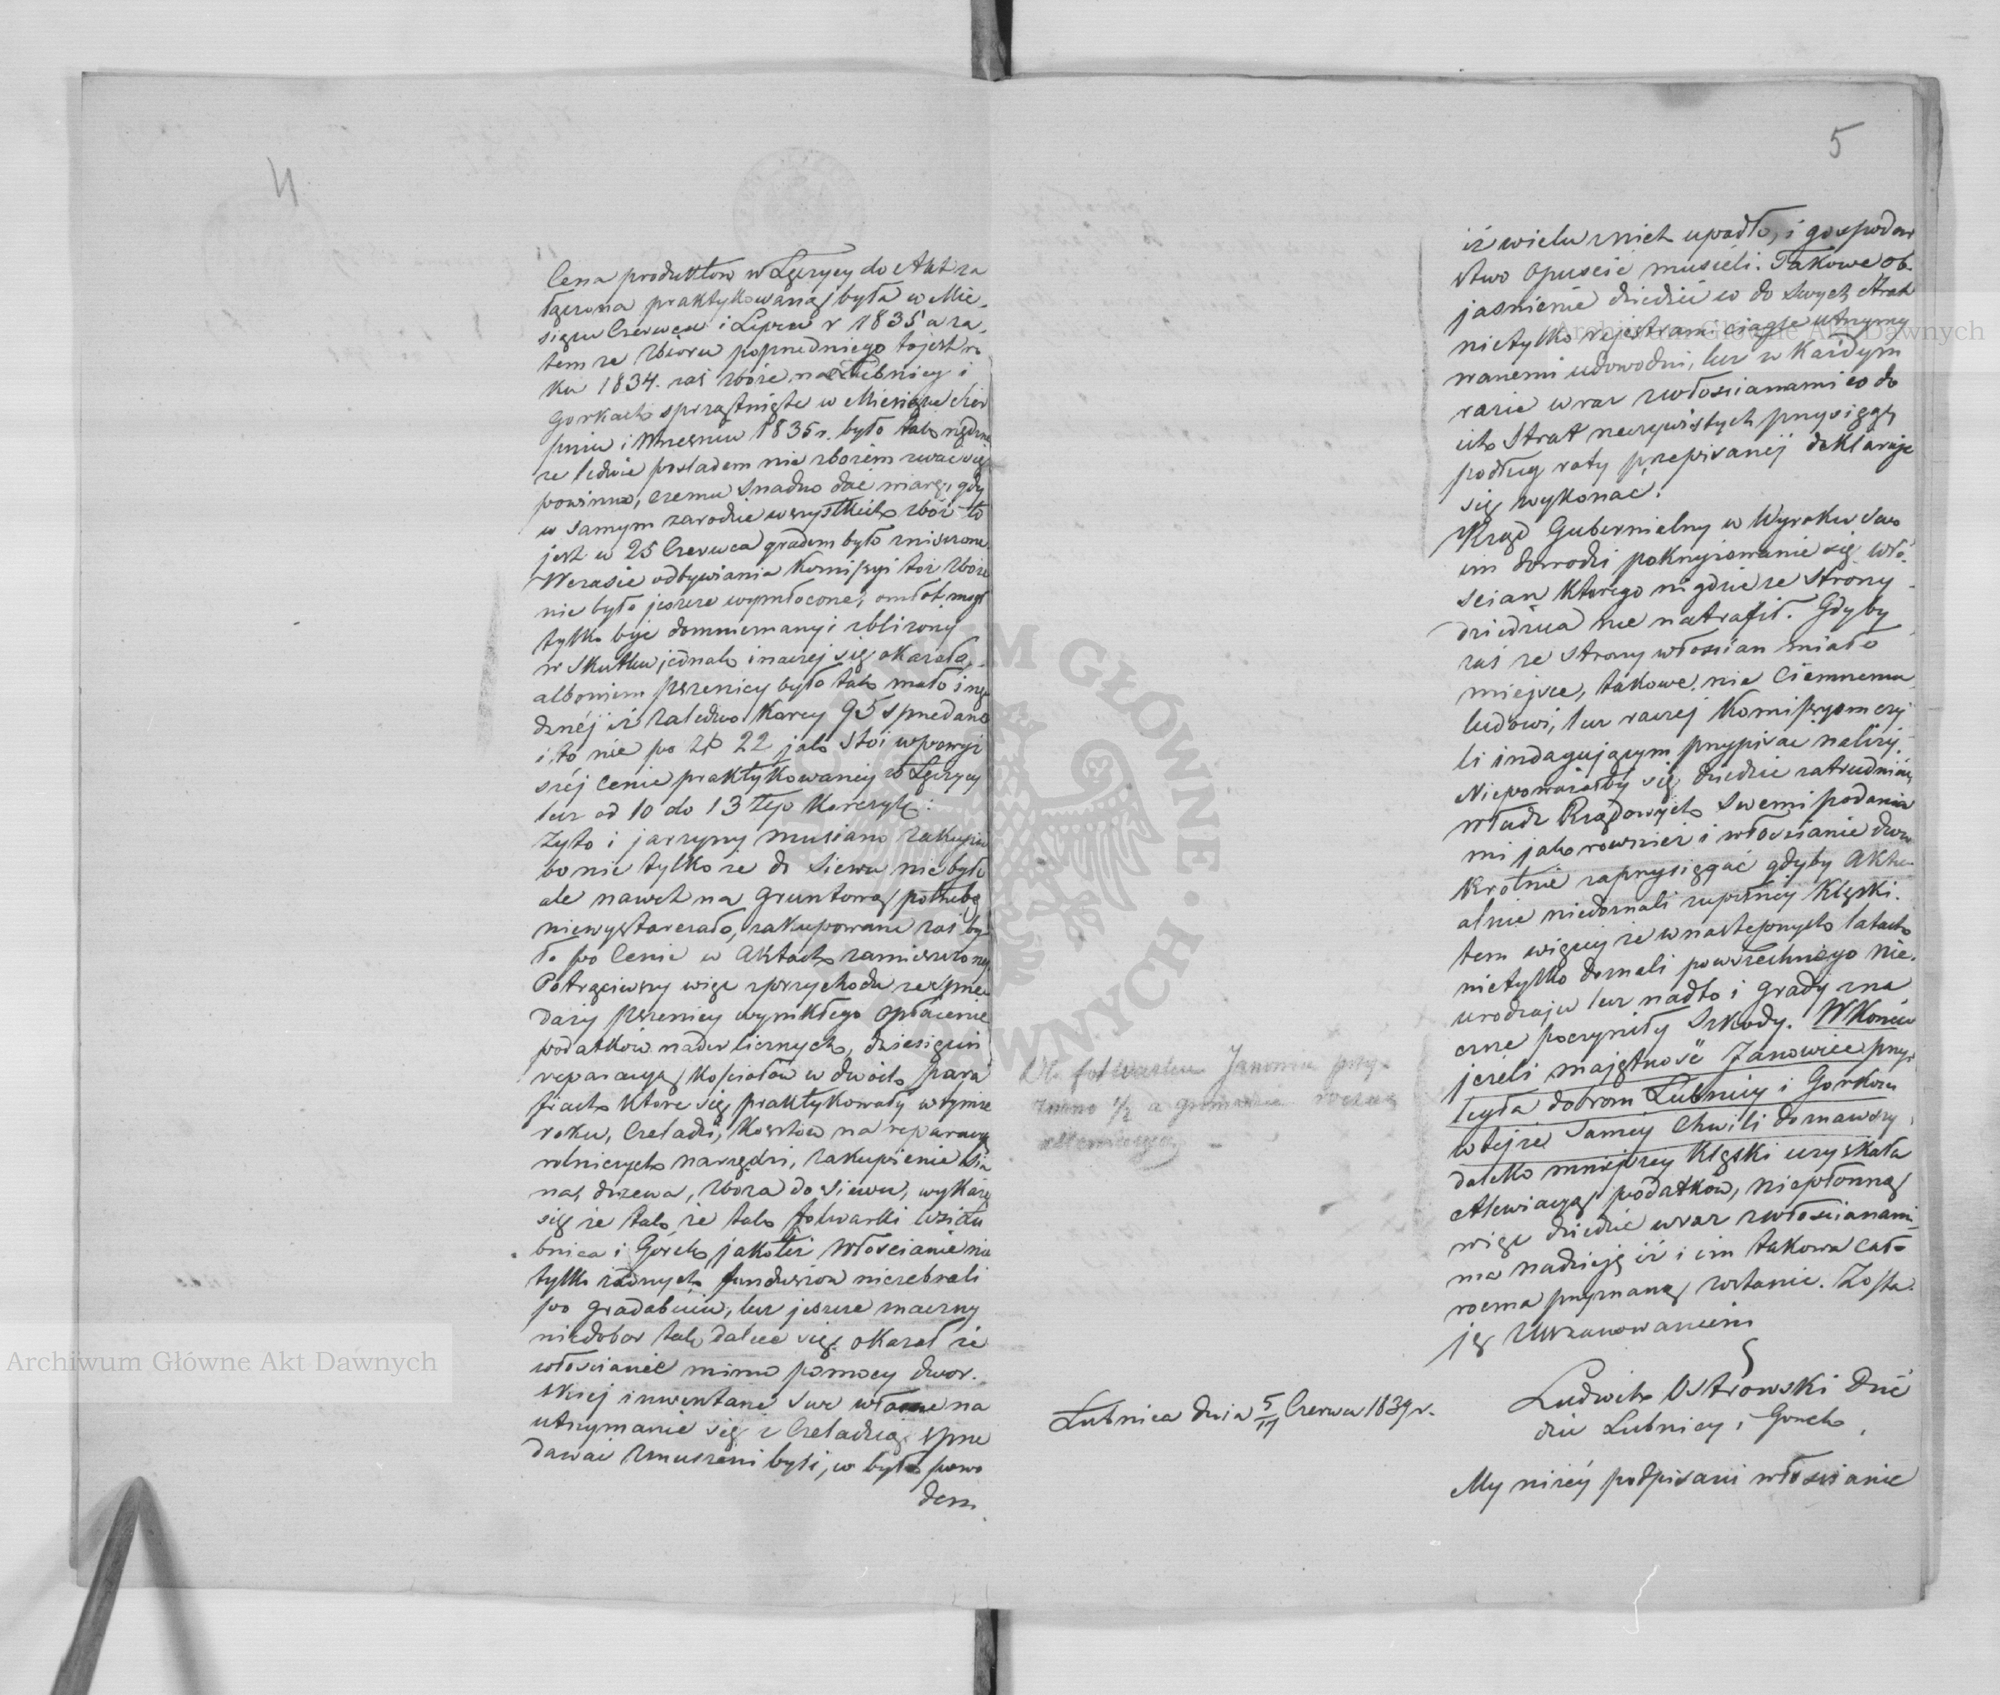 4
Cena produktów w Łęczycy do Akt za
łączona praktykowaną była w Mie-
siącu Czerwcu i Lipcu r 1835 a za-
tem ze zbioru poprzedniego to jest ro
ku 1834. zaś zboże na Łubnicy i
Gorkach sprzątnięte w Miesiącu Sier
pniu i Wrześniu 1835 r. było tak nędzne
że ledwie pośladem nie zbożem zwać się
powinno, czemu snadno dać wiarę, gdy
w samym zarodzie wszystkich zbóż to
jest w 25 Czerwca gradem było zniszczone
W czasie odbywania Komissyi toż zboże
nie było jeszcze wymłócone, omłót mógł
tylko być domniemany i zbliżony
w skutku jednak inaczej się okazało,
albowiem pszenicy było tak mało i nę
dznéj iż zaledwo Korcy 95 sprzedano
i to nie po Zł 22 jak stoi w powyż
széj cenie praktykowanéy w Łęczycy
lecz od 10 do 13 złp Korczyk.
Żyto i jarzyny musiano zakupić
bo nie tylko że do siewu nie było
ale nawet na Gruntową potrzebę
niewystarczało, zakupowane zaś by-
ło po Cenie w Aktach zamieszczonej
Potrąciwszy więc z przychodu ze sprze
daży pszenicy wynikłego opłacenie
podatków nader licznych, dziesięcin
reparacyą Kościołów w dwóch para
fiach które się praktykowały w tymże
roku, Czeladzi, Kosztów na reparacyą
rolniczych narzędzi, zakupienie sia
na, drzewa, zboża do siewu, wykaże
się że tak że tak folwarki
bnica i Górek jakoteż Włościanie nie
tylko żadnych funduszów niezebrali
po gradobiciu, lecz jeszcze znaczny
niedobor tak dalece się okazał że
włościanie mimo pomocy dwor-
skiej inwentarze swe własne na
utrzymanie się i Czeladzią sprze
dawać zmuszeni byli, co było powo
dem
5
iż wielu z nich upadło, i gospodar
stwo opuscić musieli. Takowe ob-
jaśnienie dziedzic co do swych strat
nietylko rejestrami ciągle utrzymy
wanemi udowodni, lecz w każdym
razie wraz z włościanami co do
ich strat rzeczywistych przysięgę
podług roty przepisanéj deklaruje
się wykonać.
Rząd Gubernialny w Wyroku swo
im dowodzi pokrzyżowanie się wło-
scian którego nigdzie ze strony
dziedzica nie natrafił. Gdyby
zaś ze strony włoscian miało
miejsce, takowe nie Ciemnemu
ludowi, lecz raczej Komissyom czy
li indagującym przypisać należy.
Niepoważałby się dziedzic zatrudniać
Władz Rządowych swemi podania
mi jako rownież i włościanie dwu
krotnie zaprzysięgać gdyby aktu-
alnie niedoznali zupełnéy klęski.
tem więcéj że w następnych latach
nietylko doznali powszechnego nie-
urodzaju lecz nadto i grady zna
czne poczyniły szkody. W Koncu
jeżeli majętność Janowice przy-
legła dobrom Łubnicy i Gorkom
w tejże samey Chwili doznawszy
daleko mniejszéy klęski uzyskała
allewiacyą podatków, niepłonną
więc dziedzic wraz z włościanami
ma nadzieję iż i im takowa cało
roczna przyznaną zostanie. Zosta-
ję z Uszanowaniem
Ludwik Ostrowski Dzie
dzic Łubnicy i Gorek
My niżéy podpisani włościanie
Dla folwarku Janowice przy-
znano 1/2 a gromadzie roczną
allewiacyą
Łubnica dnia 5/17 Czerwca 1839 r.
Archiwum Główne Akt Dawnych
Archiwum Główne Akt Dawnych
ARCHIWUM GŁÓWNE AKT DAWNYCH